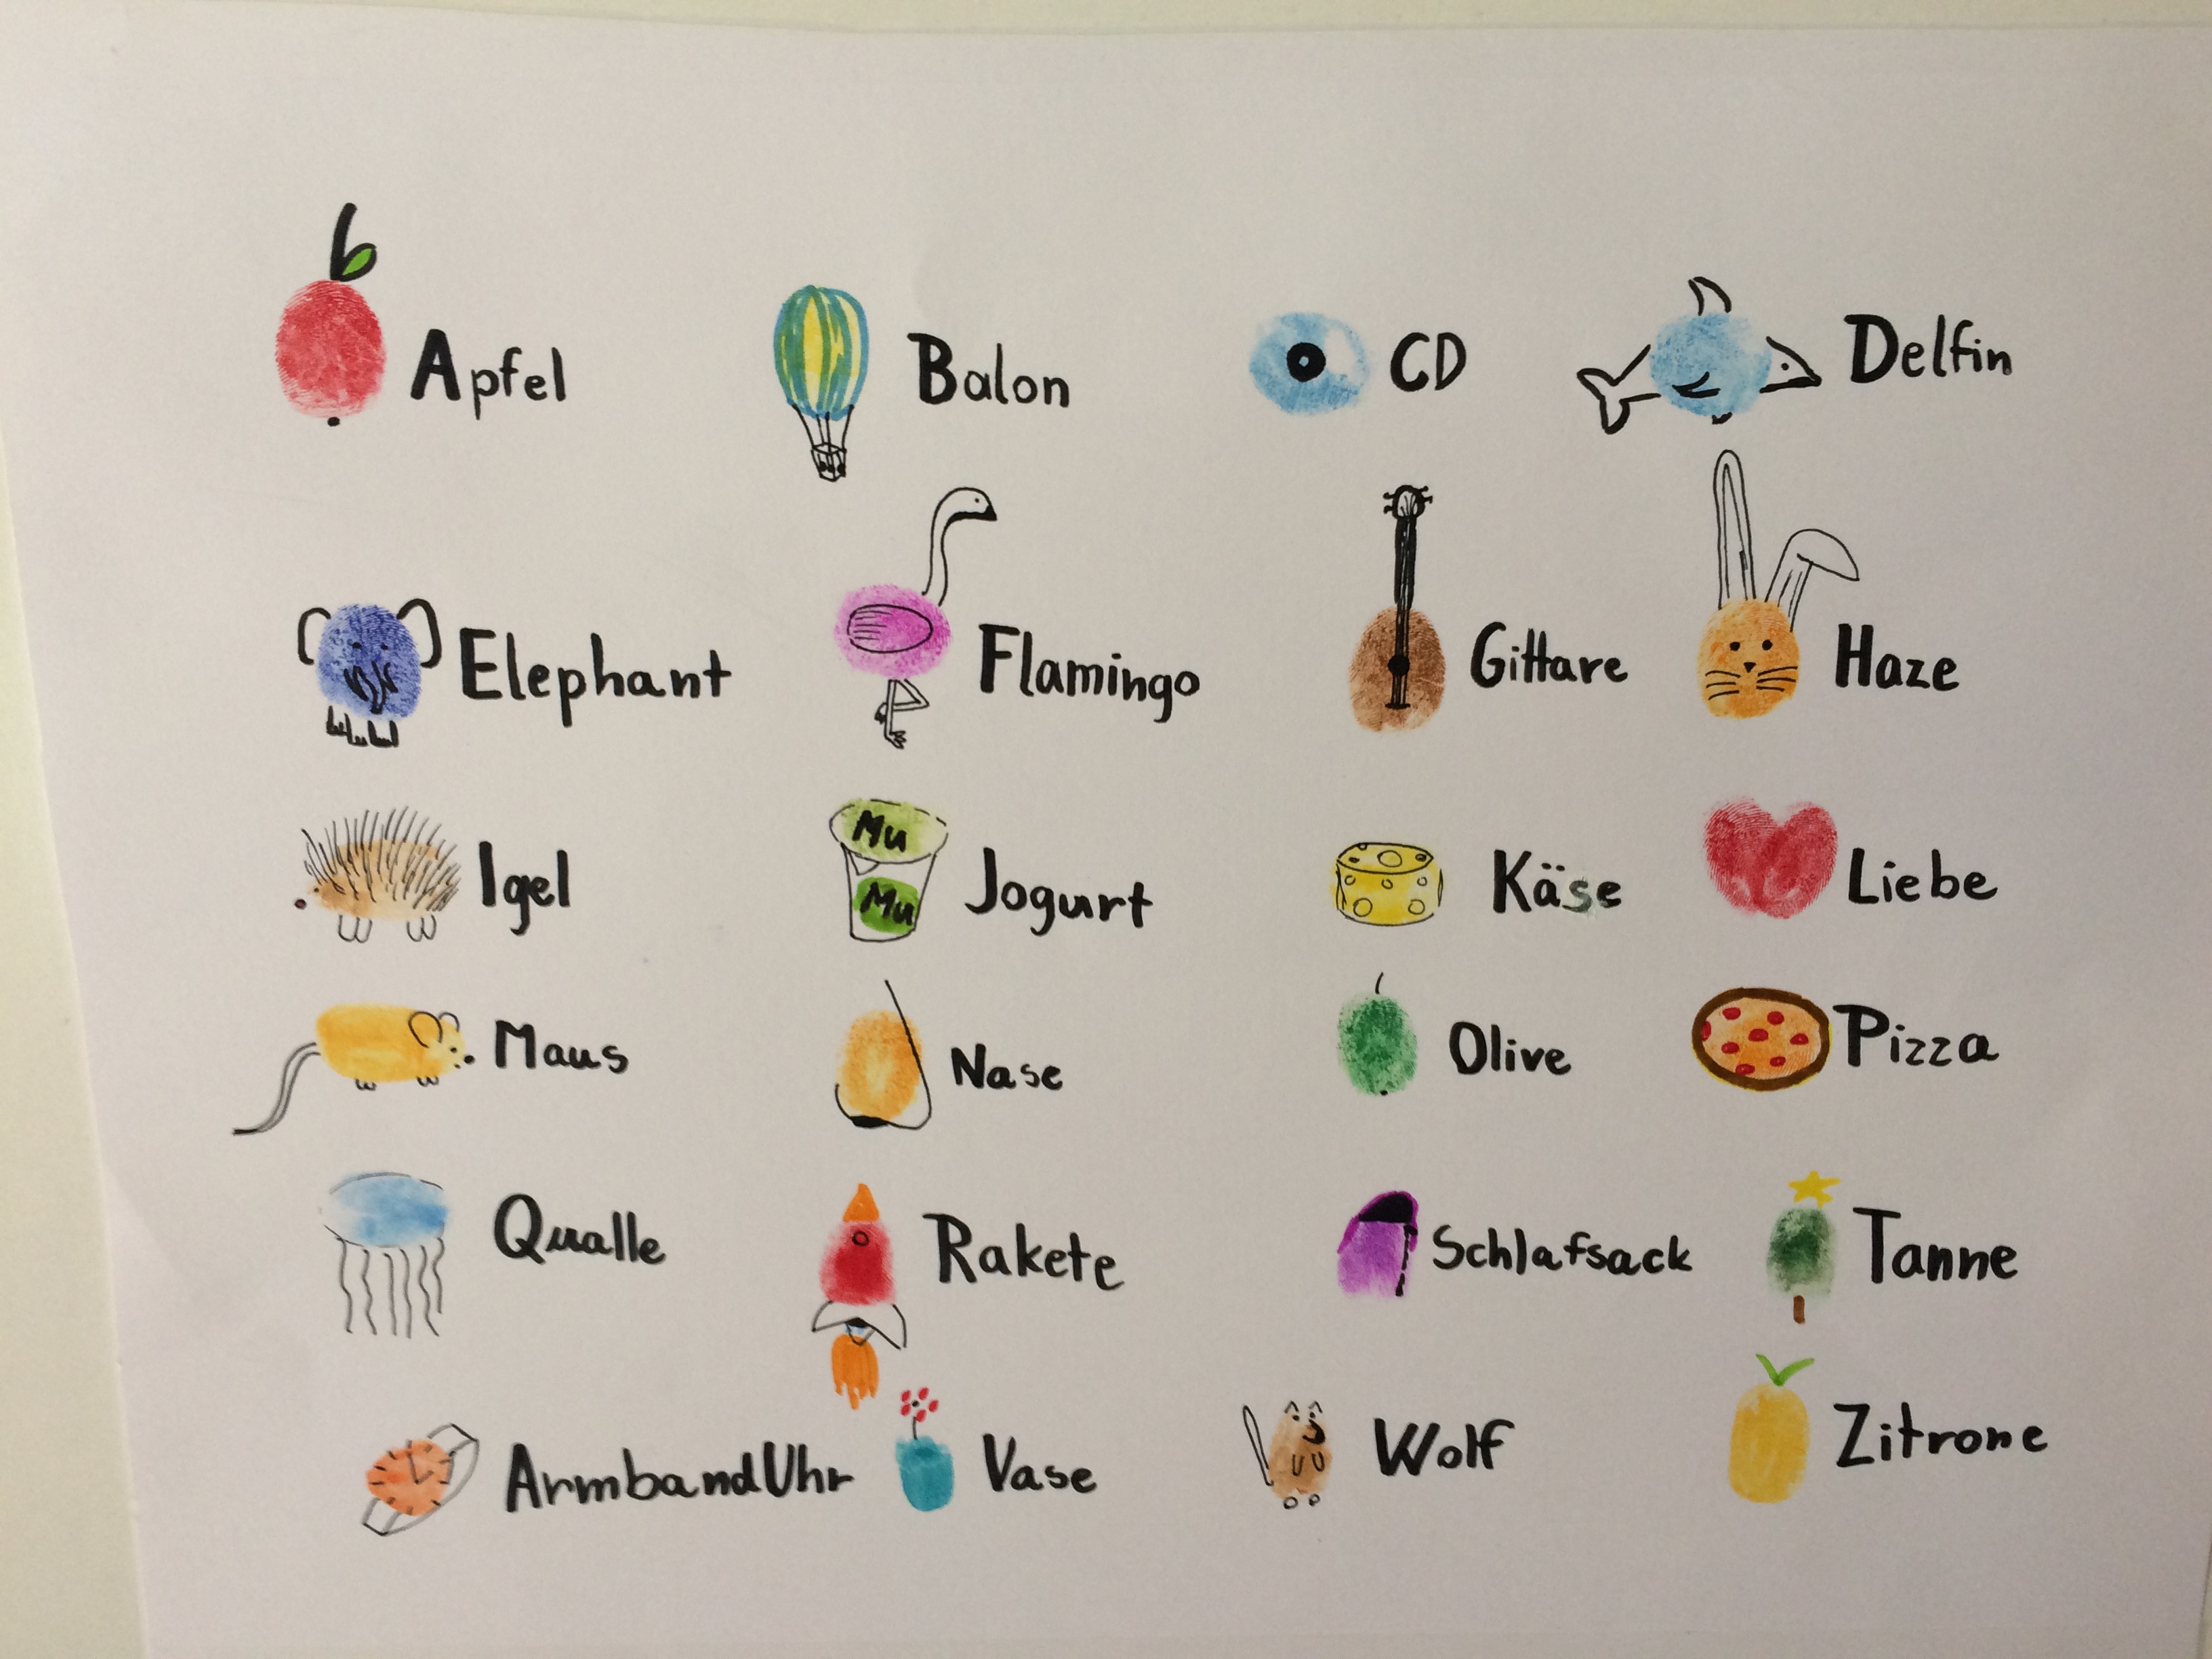 Apfel Balon CD Delfin
Elephant Flamingo Gittare Haze
Mu
Igel Mu Jogurt Käse Liebe
Maus Nase Olive Pizza
Qualle Rakete Schlafsack Tanne
ArmbandUhr Vase Wolf Zitrone